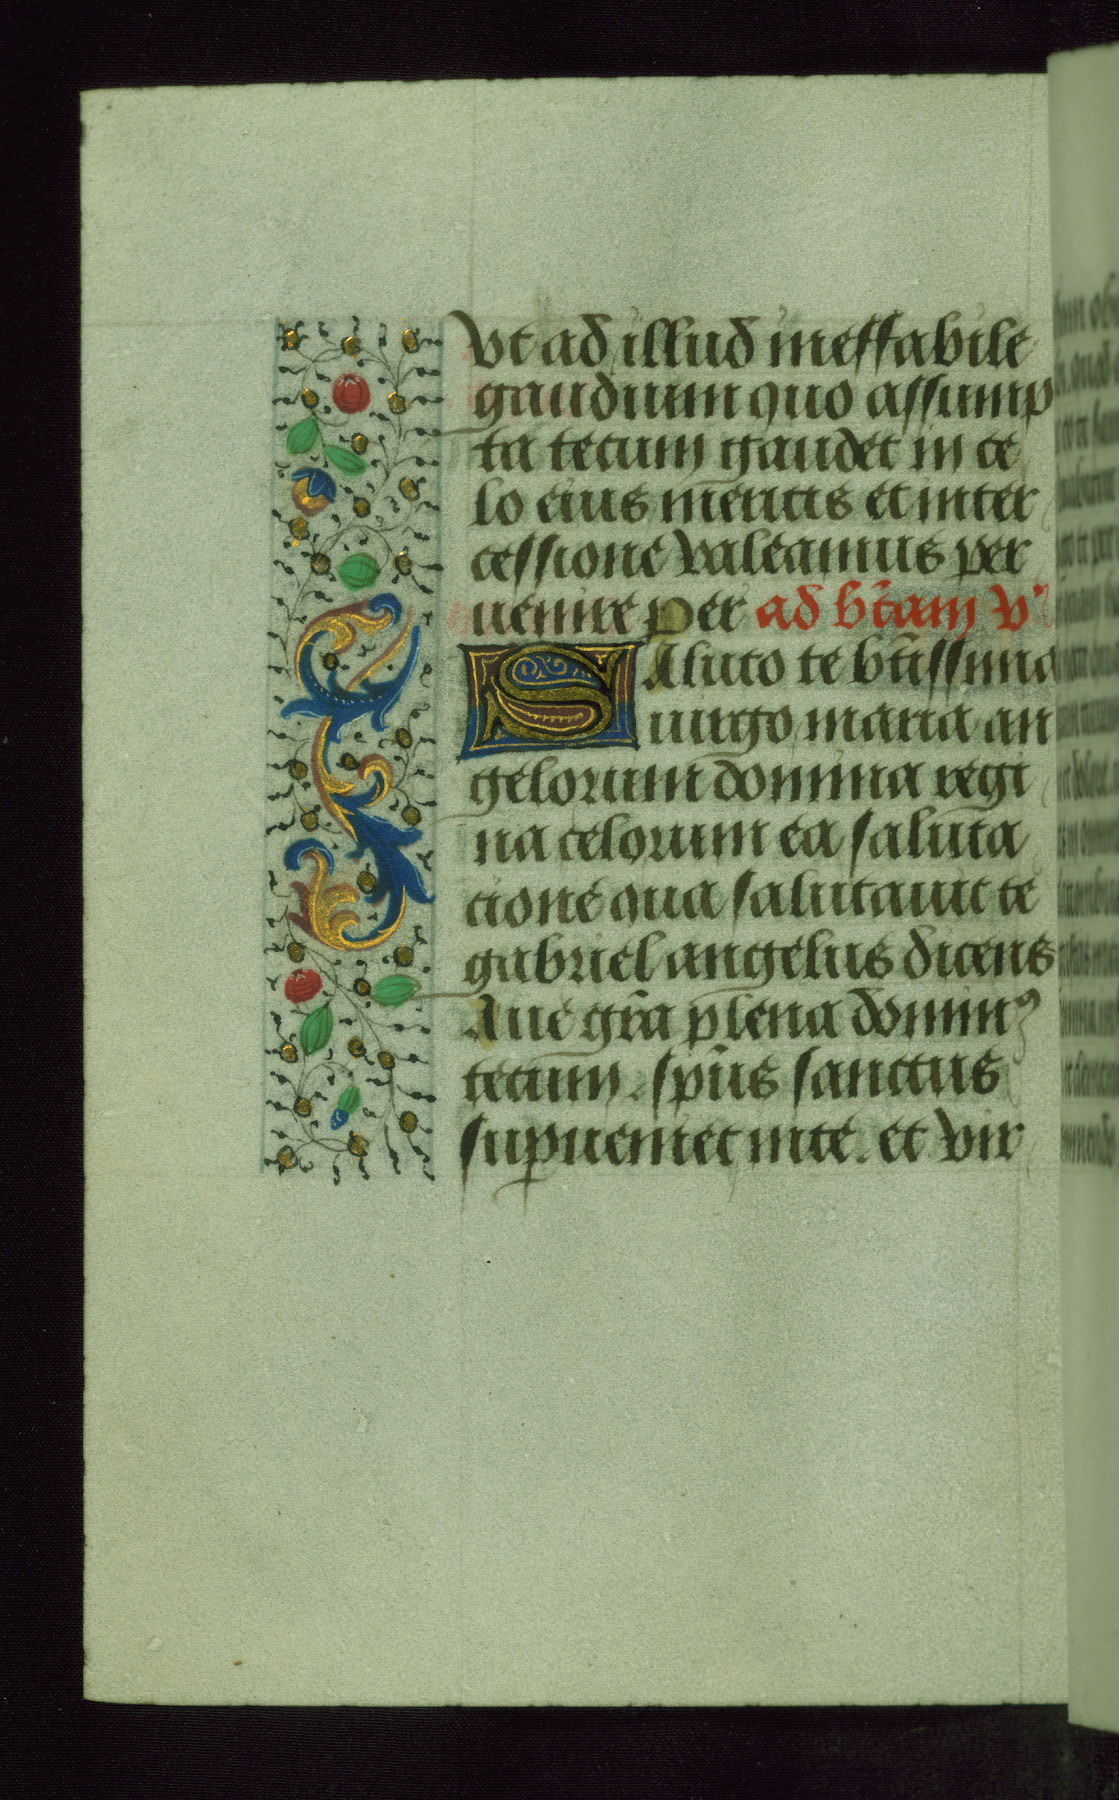 Vt ad illud ineffabile
gaudium quo assump
ta tecum gaudet in ce
lo eius meritis et inter
cessione valeamus per
uenire per ad btãm v
Saluto te btissima
uirgo maria an
gelorum domina regi
na celorum ea saluta
cione qua salutauit te
gabriel angelus dicens
Aue grã plena domin9
tecum. spũs sanctus
supueniet inte. et vir